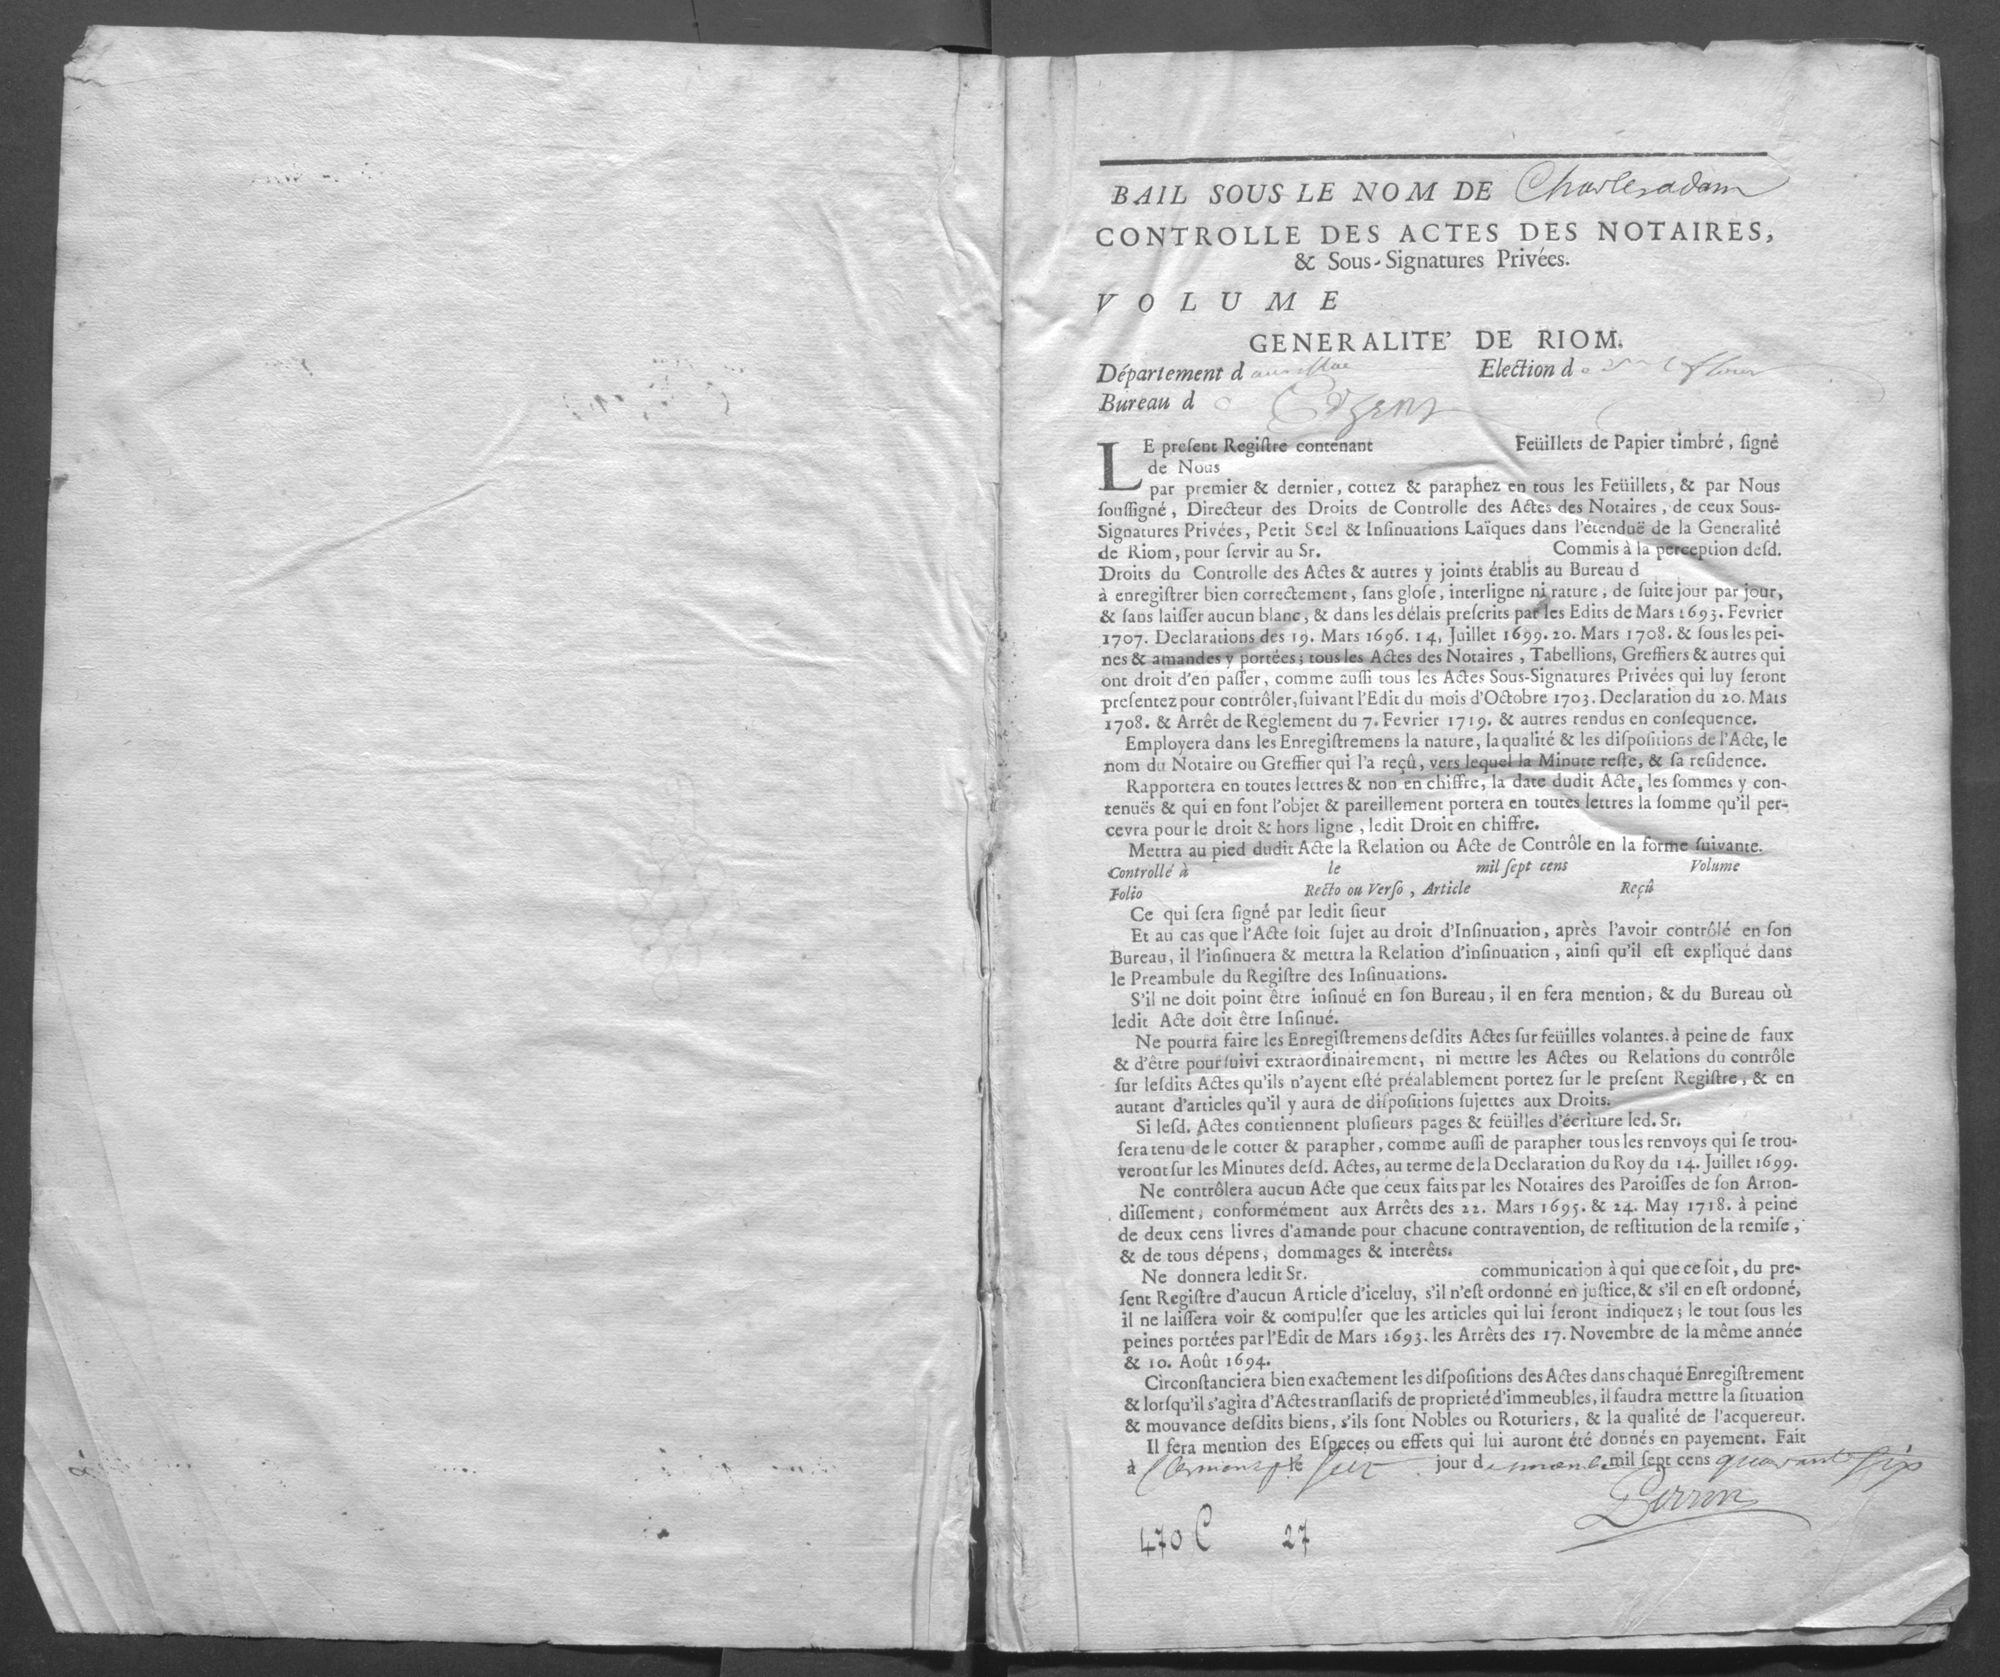 BAIL SOUS LE NOM DE Charles adam
CONTROLLE DES ACTES DES NOTAIRES,
& Sous-Signatures Privées.
VOLUME
GENERALITE' DE RIOM.
Département d aurillac Election d e St flour
Bureau d
LE preſent Regiſtre contenant Feüillets de Papier timbré, ſigné
de Nous
par premier & dernier, cottez & paraphez en tous les Feüillets, & par Nous
ſouſſigné, Directeur des Droits de Controlle des Actes des Notaires, de ceux Sous-
Signatures Privées, Petit Scel & Inſinuations Laïques dans l'étenduë de la Generalité
de Riom, pour ſervir au Sr. Commis à la perception deſd.
Droits du Controlle des Actes & autres y joints établis au Bureau d
à enregiſtrer bien correctement, ſans gloſe, interligne ni rature, de ſuite jour par jour,
& ſans laiſſer aucun blanc, & dans les délais preſcrits par les Edits de Mars 1693. Fevrier
1707. Declarations des 19. Mars 1696. 14, Juillet 1699. 20. Mars 1708. & ſous les pei-
nes & amandes y portées; tous les Actes des Notaires, Tabellions, Greffiers & autres qui
ont droit d'en paſſer, comme auſſi tous les Actes Sous-Signatures Privées qui luy ſeront
preſentez pour contrôler, ſuivant l'Edit du mois d'Octobre 1703. Declaration du 20. Mars
1708. & Arrêt de Reglement du 7. Fevrier 1719. & autres rendus en conſequence.
Employera dans les Enregiſtremens la nature, la qualité & les diſpoſitions de l'Acte, le
nom du Notaire ou Greffier qui l'a reçû, vers lequel la Minute reſte, & ſa reſidence.
Rapportera en toutes lettres & non en chiffre, la date dudit Acte, les ſommes y con-
tenuës & qui en font l'objet & pareillement portera en toutes lettres la ſomme qu'il per-
cevra pour le droit & hors ligne, ledit Droit en chiffre.
Mettra au pied dudit Acte la Relation ou Acte de Contrôle en la forme ſuivante.
Controllé à le mil ſept cens Volume
Folio Recto ou Verſo, Article Reçû
Ce qui ſera ſigné par ledit ſieur
Et au cas que l'Acte ſoit ſujet au droit d'Inſinuation, après l'avoir contrôlé en ſon
Bureau, il l'inſinuera & mettra la Relation d'inſinuation, ainſi qu'il eſt expliqué dans
le Preambule du Regiſtre des Inſinuations.
S'il ne doit point être inſinué en ſon Bureau, il en fera mention, & du Bureau où
ledit Acte doit être Inſinué.
Ne pourra faire les Enregiſtremens deſdits Actes ſur feüilles volantes. à peine de faux
& d'être pourſuivi extraordinairement, ni mettre les Actes ou Relations du contrôle
ſur leſdits Actes qu'ils n'ayent eſté préalablement portez ſur le preſent Regiſtre, & en
autant d'articles qu'il y aura de diſpoſitions ſujettes aux Droits.
Si leſd. Actes contiennent pluſieurs pages & feüilles d'écriture led. Sr.
ſera tenu de le cotter & parapher, comme auſſi de parapher tous les renvoys qui ſe trou-
veront ſur les Minutes deſd. Actes, au terme de la Declaration du Roy du 14. Juillet 1699.
Ne contrôlera aucun Acte que ceux faits par les Notaires des Paroiſſes de ſon Arron-
diſſement, conformément aux Arrêts des 22. Mars 1695. & 24. May 1718. à peine
de deux cens livres d'amande pour chacune contravention, de reſtitution de la remiſe,
& de tous dépens, dommages & interêts.
Ne donnera ledit Sr. communication à qui que ce ſoit, du pre-
ſent Regiſtre d'aucun Article d'iceluy, s'il n'eſt ordonné en juſtice, & s'il en eſt ordonné,
il ne laiſſera voir & compulſer que les articles qui lui ſeront indiquez; le tout ſous les
peines portées par l'Edit de Mars 1693. les Arrêts des 17. Novembre de la même année
& 10. Août 1694.
Circonſtanciera bien exactement les diſpoſitions des Actes dans chaque Enregiſtrement
& lorſqu'il s'agira d'Actes tranſlatifs de proprieté d'immeubles, il faudra mettre la ſituation
& mouvance deſdits biens, s'ils ſont Nobles ou Roturiers, & la qualité de l'acquereur.
Il fera mention des Eſpeces ou effets qui lui auront été donnés en payement. Fait
à Clermont le jour d mil ſept cens quarante six
470 C 27